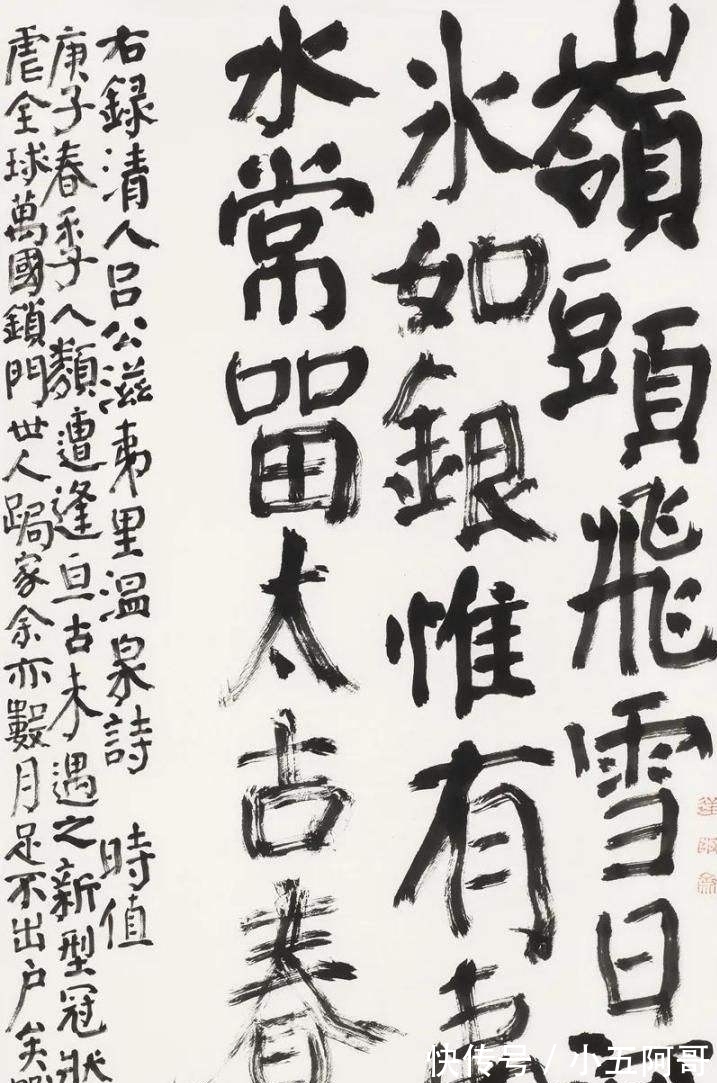 嶺頭飛雪日
氷如銀惟有
水常留太古春
右録清人吕公滋里温泉詩 時值
庚子春季人類遭逢亘古未遇之新型冠狀
虐全球萬國鎖門世人跼家余亦數月足不出户矣
快传号 / 小五阿哥